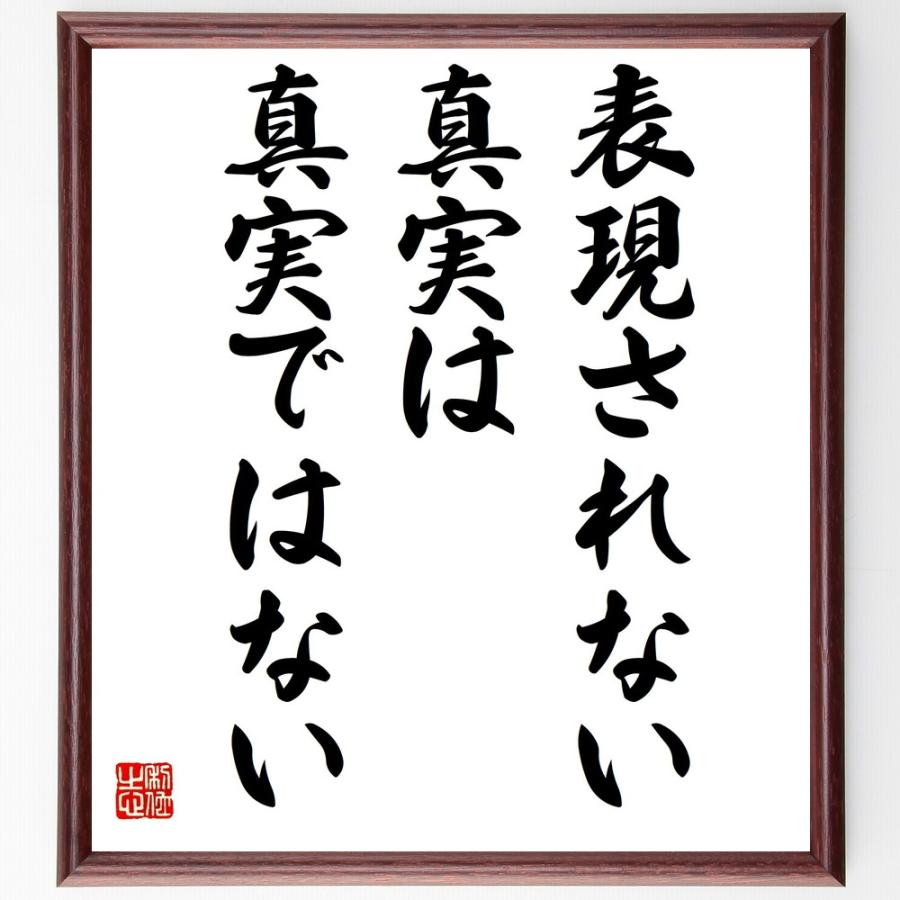 表現されない
真実は
真実ではない